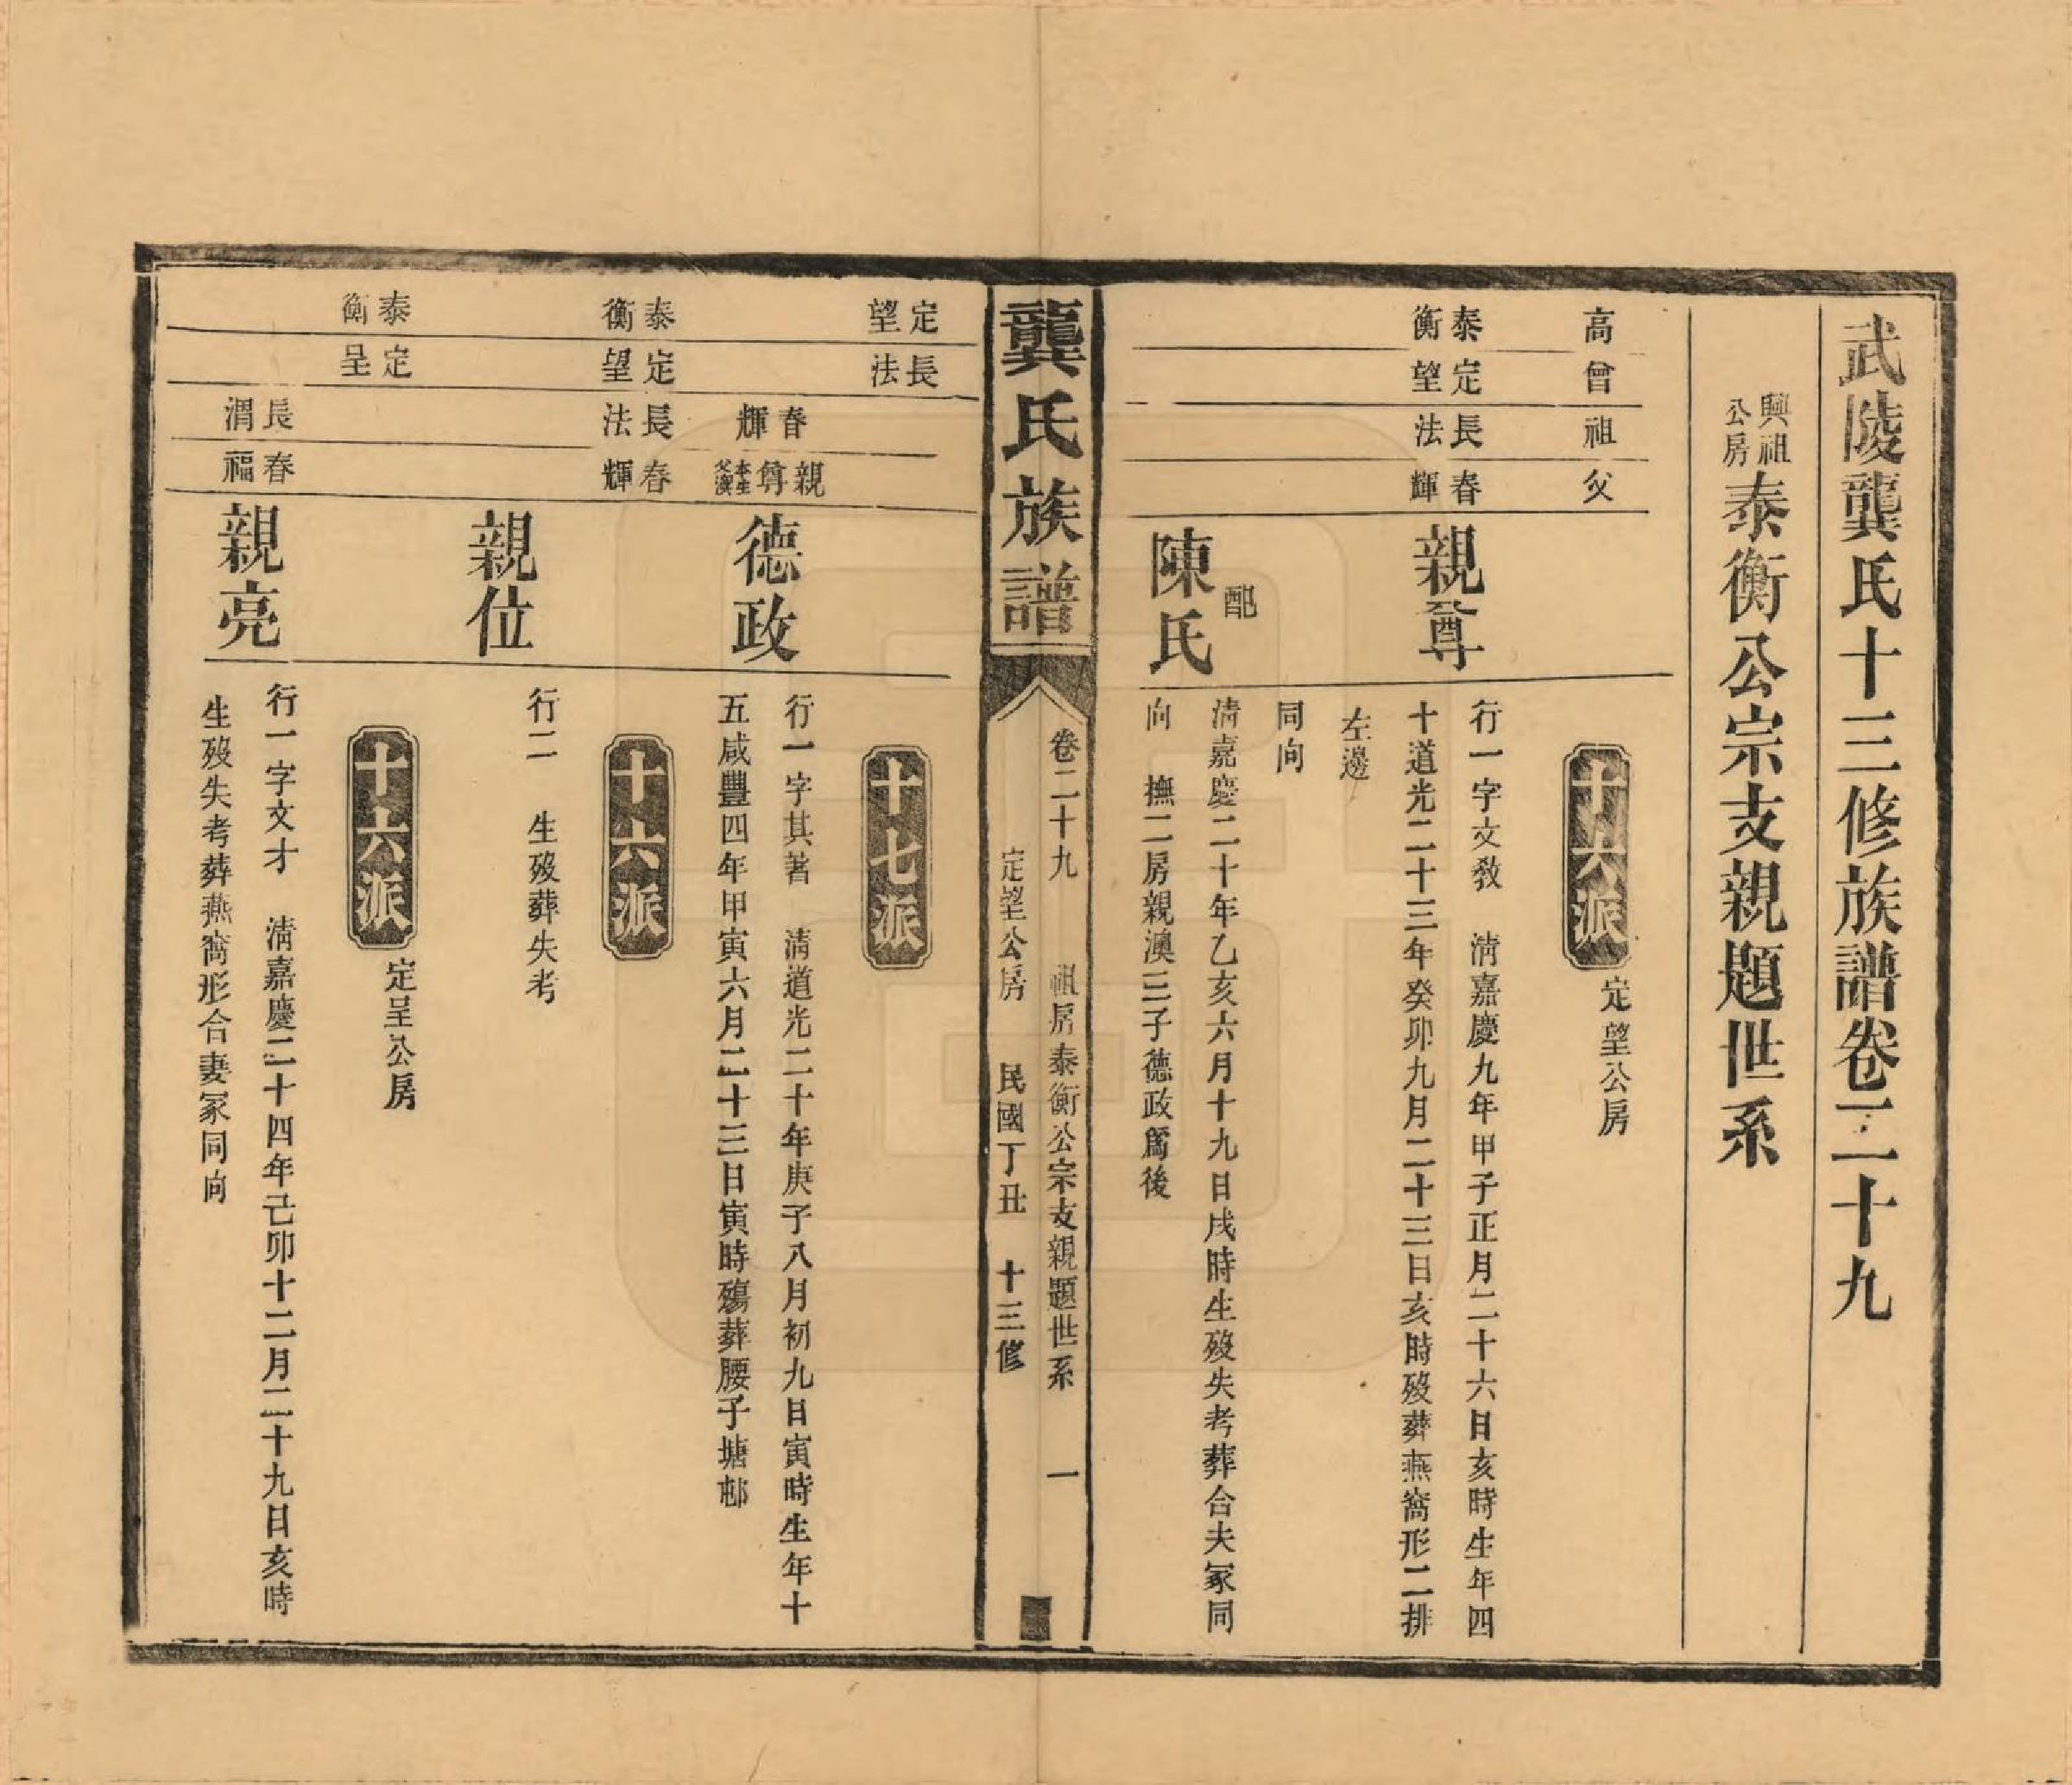 武陵龔氏十三修族譜卷二十九
興祖公房泰衡公宗支親題世系
高
曾
祖
父
十六派
定望公房
泰衡
定望
長法
春輝
親尊
行一字文教　清嘉慶九年甲子正月二十六日亥時生年四
十道光二十三年癸卯九月二十三日亥時歿葬燕窩形二排
左邊
同向
配
陳氏
清嘉慶二十年乙亥六月十九日戌時生歿失考葬合夫冢同
向　撫二房親澳三子德政爲後
龔氏族譜
卷二十九　祖房泰衡公宗支親題世系　一
定望公房　民國丁丑　十三修
定望
長法
十七派
春輝
親尊
本生父澳
德政
行一字其著　清道光二十年庚子八月初九日寅時生年十
五咸豐四年甲寅六月二十三日寅時殤葬腰子塘邨
泰衡
定望
長法
春輝
十六派
親位
行二　生歿葬失考
泰衡
定呈
十六派
定呈公房
長渭
春福
親亮
行一字文才　清嘉慶二十四年己卯十二月二十九日亥時
生歿失考葬燕窩形合妻冢同向